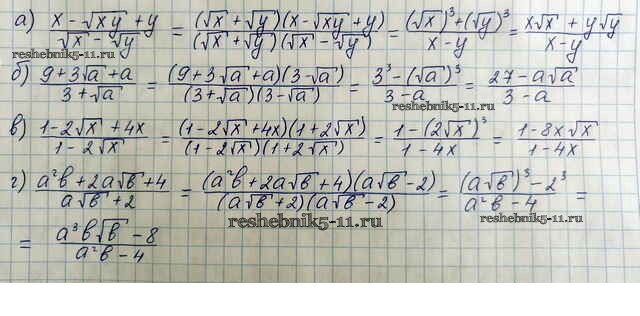 а) (x - √xy + y)/(√x - √y) = ((√x + √y)(x - √xy + y))/((√x + √y)(√x - √y)) = ((√x)³ + (√y)³)/(x - y) = (x√x + y√y)/(x - y)
б) (9 + 3√a + a)/(3 + √a) = ((9 + 3√a + a)(3 - √a))/((3 + √a)(3 - √a)) = (3³ - (√a)³)/(3 - a) = (27 - a√a)/(3 - a)
reshebnik5-11.ru
в) (1 - 2√x + 4x)/(1 - 2√x) = ((1 - 2√x + 4x)(1 + 2√x))/((1 - 2√x)(1 + 2√x)) = (1 - (2√x)³)/(1 - 4x) = (1 - 8x√x)/(1 - 4x)
г) (a²b + 2a√b + 4)/(a√b + 2) = ((a²b + 2a√b + 4)(a√b - 2))/((a√b + 2)(a√b - 2)) = ((a√b)³ - 2³)/(a²b - 4) =
reshebnik5-11.ru reshebnik5-11.ru
= (a³b√b - 8)/(a²b - 4)